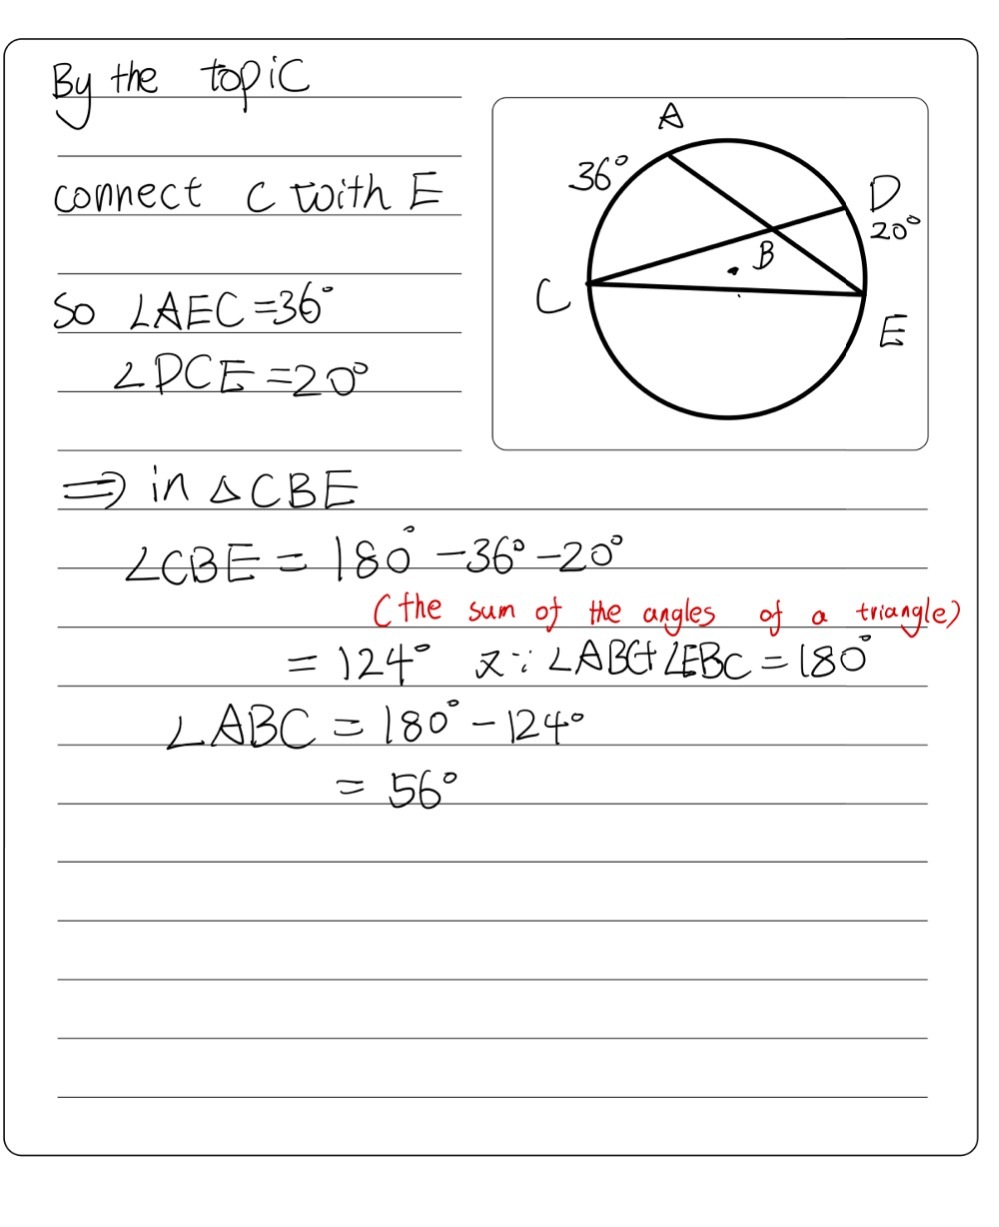 By the topic
connect C with E
So ∠AEC=36°
∠DCE=20°
⇒ in △CBE
∠CBE = 180° -36° -20°
(the sum of the angles of a triangle)
= 124° 又∵ ∠ABC+∠EBC = 180°
∠ABC = 180° - 124°
= 56°
A
36°
D
20°
B
C
E